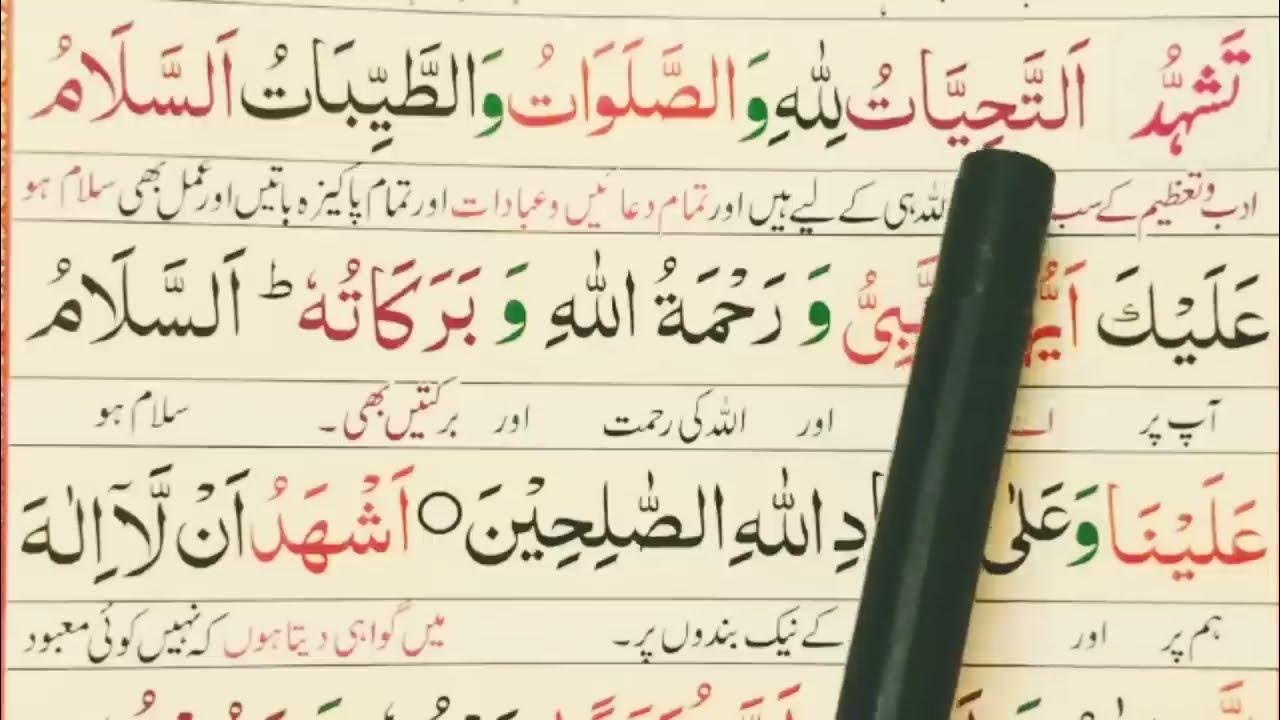 تَشَہُّد اَلتَّحِیَّاتُ لِلّٰهِ وَ الصَّلَوَاتُ وَ الطَّیِّبَاتُ اَلسَّلَامُ
ادب و تعظیم کے سب للہ ہی کے لیے ہیں اور تمام دعائیں و عبادات اور تمام پاکیزہ باتیں اور عمل بھی سلام ہو
عَلَیْكَ النَّبِیُّ وَ رَحْمَةُ اللّٰهِ وَ بَرَكَاتُهٗ ؕ اَلسَّلَامُ
آپ پر اور اللہ کی رحمت اور برکتیں بھی۔ سلام ہو
عَلَیْنَا وَ عَلٰی دِ اللّٰهِ الصّٰلِحِیْنَ ○ اَشْهَدُ اَنْ لَّآ اِلٰهَ
ہم پر اور کے نیک بندوں پر۔ میں گواہی دیتا ہوں کہ نہیں کوئی معبود